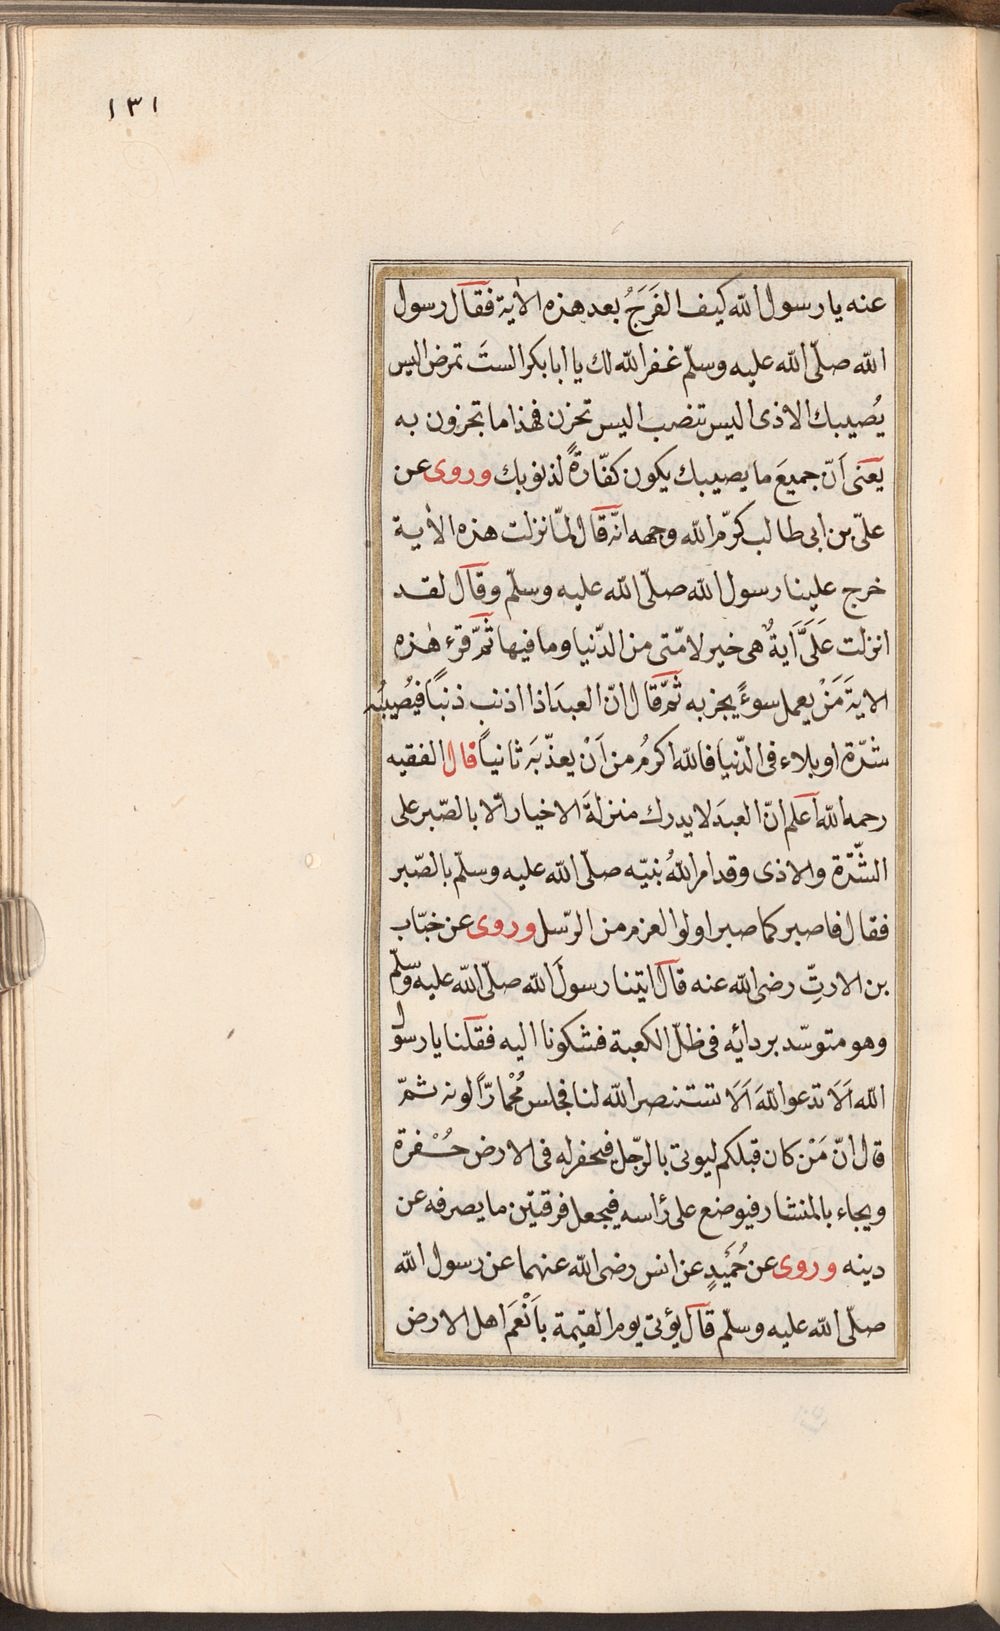 ١٣١
عنه يا رسول الله كيف الفَرَجُ بعد هذه الاٰية فقال رسول
الله صلّى الله عليه وسلّم غفر الله لك يا ابا بكر الستَ تمرض اليس
يُصيبك الاذى اليس تنصب اليس تحزن فهذا ما تجزون به
يعنى اَنّ جميعَ ما يصيبك يكون كفّارةً لذنوبك وروى عن
علىّ بن ابى طالب كرّم الله وجهه انّه قال لمّا نزلت هذه الاٰية
خرج علينا رسول الله صلّى الله عليه وسلّم وقال لقد
انزلت عَلَىَّ اٰيةٌ هى خير لامّتى من الدّنيا وما فيها ثمّ قرء هٰذه
الاية مَنْ يعمل سوءً يجز به ثمّ قال انّ العبدَ اذا اذنب ذنبًا فيُصيبُه
شدّة او بلاء فى الدّنيا فالله اكرمُ من اَنْ يعذّبَه ثانياً قال الفقيه
رحمه الله اعلم انّ العبدَ لا يدرك منزلةَ الاخيار الّا بالصّبر على
الشّدّة والاذى وقد امر اللهُ نبيّه صلّى الله عليه وسلّم بالصّبر
فقال فاصبر كما صبر اولوا العزم من الرّسل وروى عن خبّاب
بن الارتّ رضى الله عنه قال اتينا رسولَ الله صلّى الله عليه وسلّم
وهو متوسّد بردائه فى ظلّ الكعبة فشكونا اليه فقلنا يا رسول
الله اَلَا تدعوا اللهَ اَلَا تستنصر الله لنا فجلس مُحْمارًّا لونه ثمّ
قال انّ مَنْ كان قبلكم ليوتى بالرّجل فيحفر له فى الارض حُفْرة
ويجاء بالمنشار فيوضع على رٔاسه فيجعل فرقتيْن ما يصرفه عن
دينه وروى عن حُمَيْدٍ عن انس رضى الله عنهما عن رسول الله
صلّى الله عليه وسلّم قال يؤتى يوم القيٰمة باَنْعَم اهل الارض